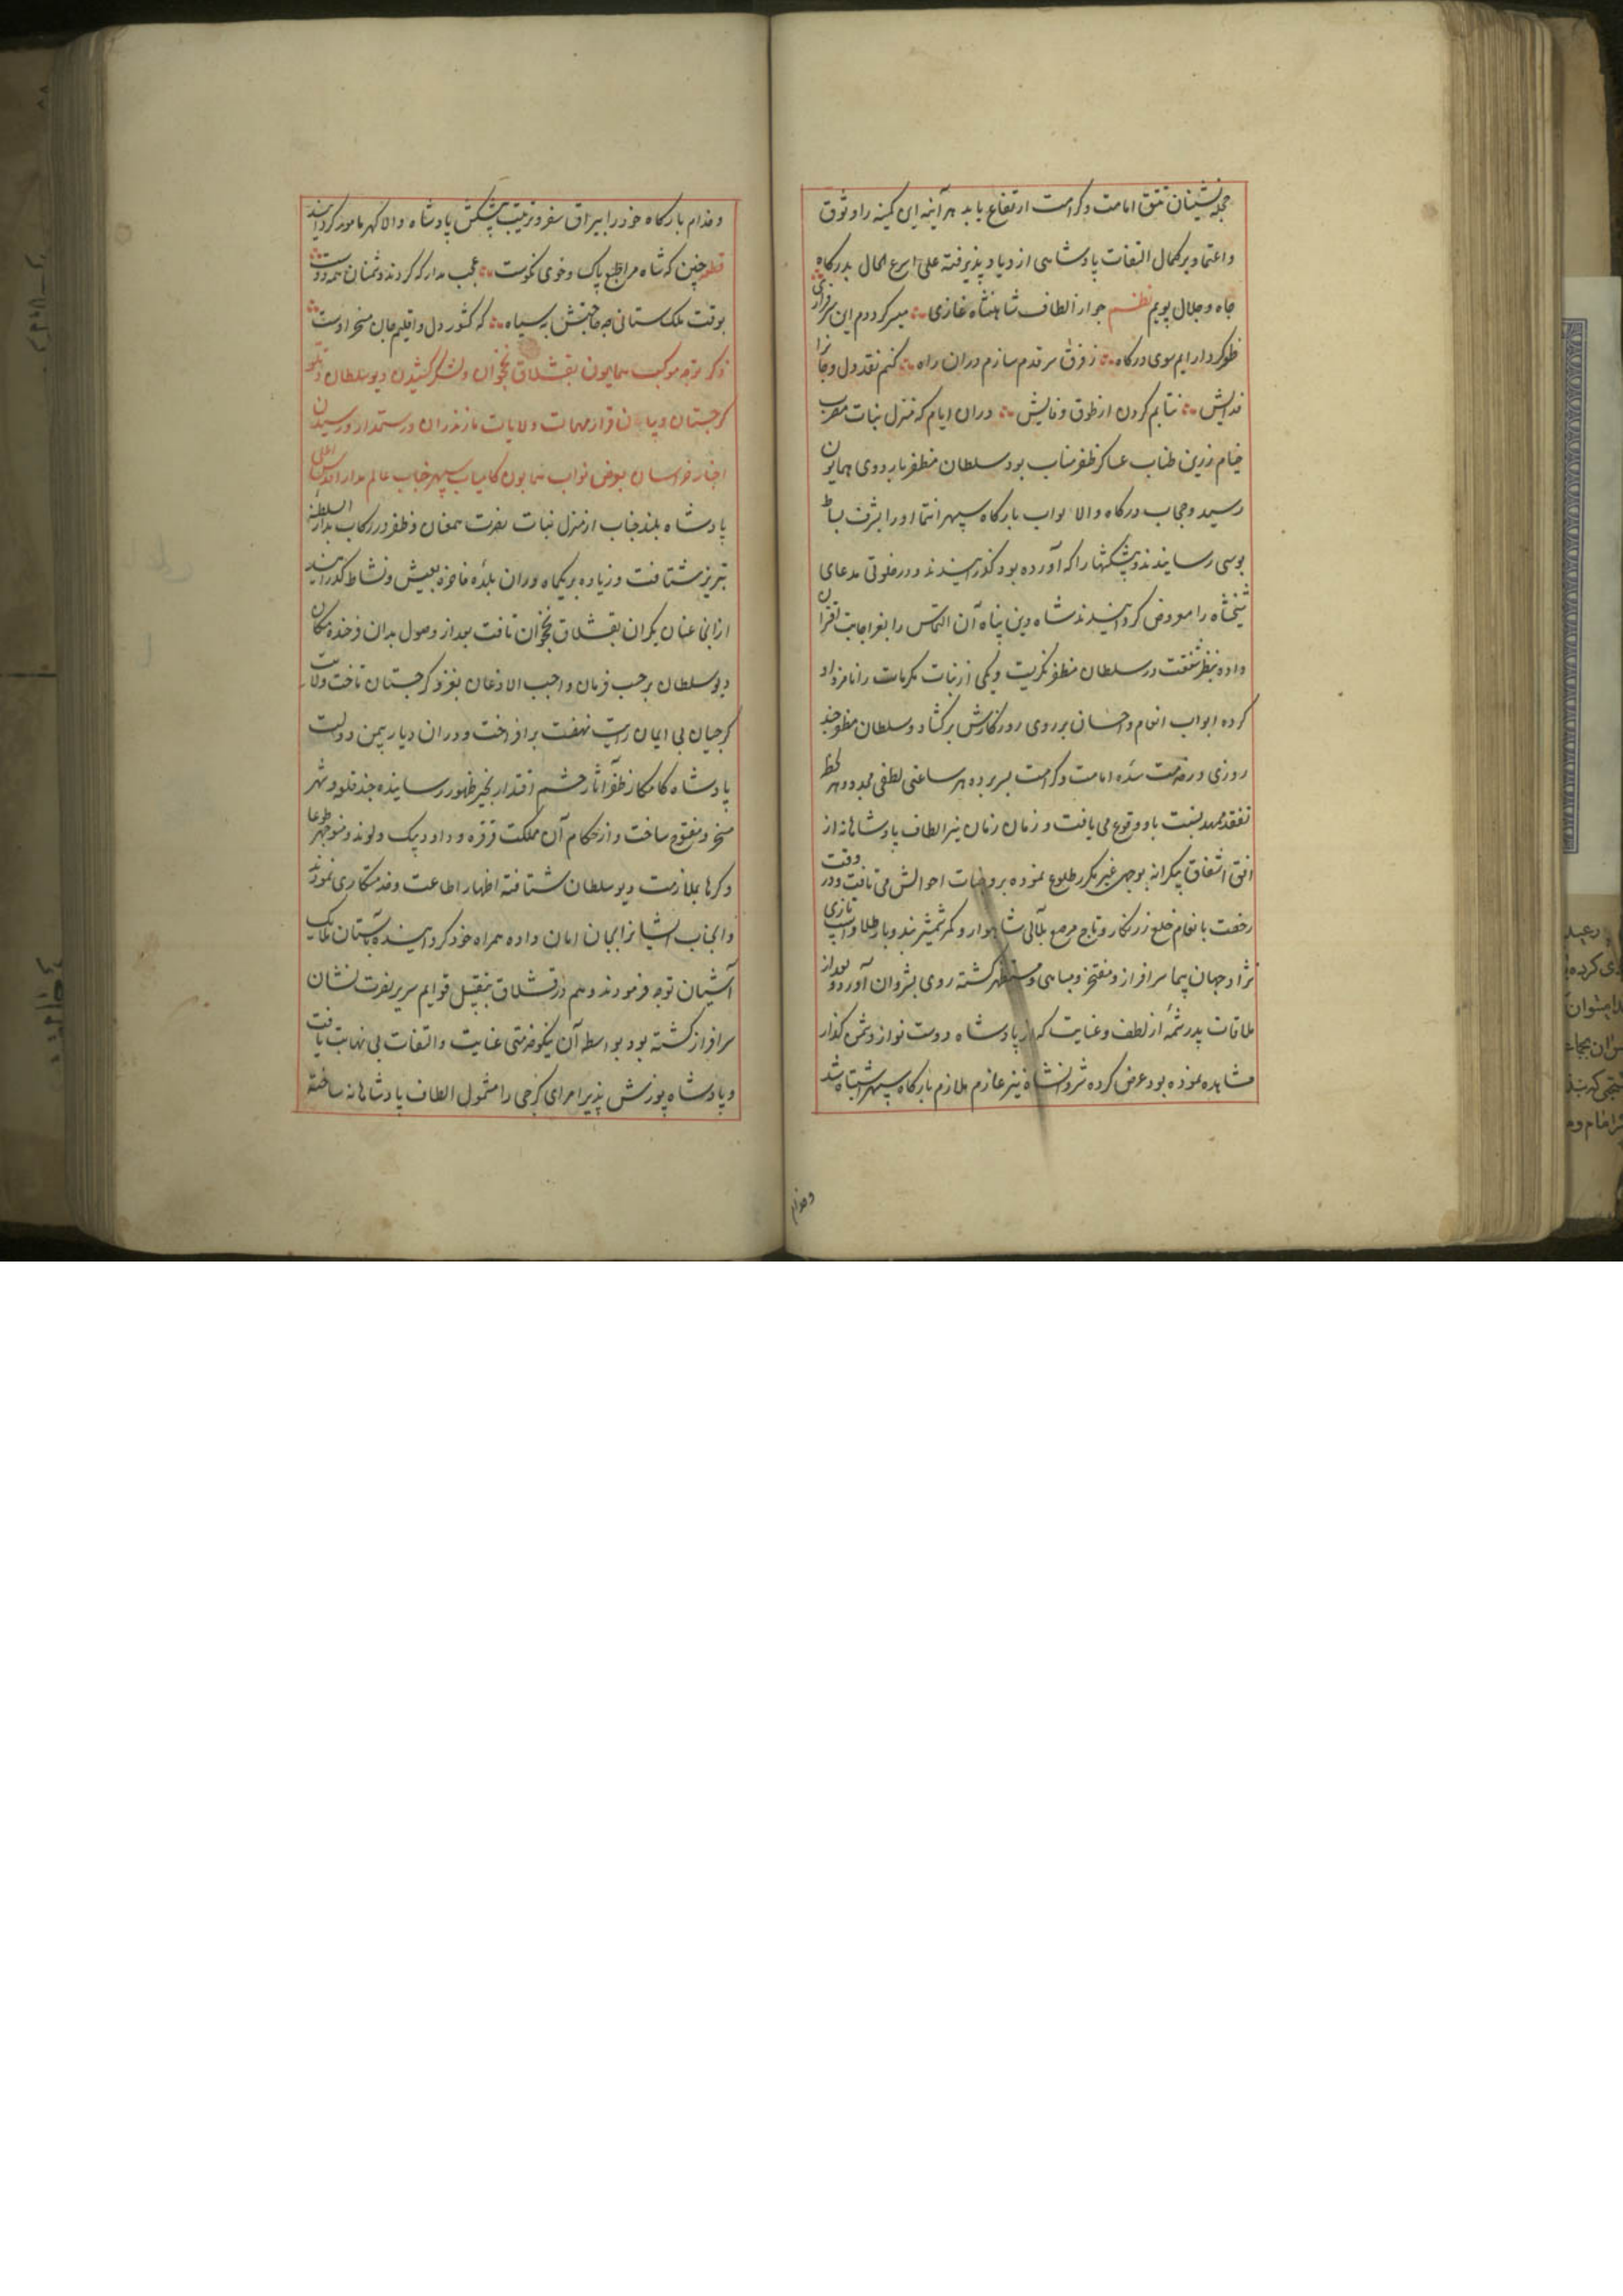 حجله نشینان تتق امامت و کرامت ارتفاع یابد هر آینه این کمینه را وثوق
و اعتماد بر کمال التفات پادشاهی ازدیاد پذیرفته علی اسرع الحال بدرکاه
جاه و جلال پویم نظم چو از الطاف شاهنشاه غازی میسر کرددم این سرفرازی
ظفرکردار ایم سوی درکاه ز فرق سر قدم سازم دران راه کنم نقد دل و جانرا
فدایش نتابم کردن از طوق وفایش دران ایام که منزل نبات مضرب
خیام زرین طناب عساکر ظفر مناب بود سلطان مظفر باردوی همایون
رسید و حجاب درکاه والا نواب بارکاه سپهر انتما او را بشرف بساط
بوسی رسانیدند و پیشکشها را که آورده بود کذرانیدند و در خلوتی مدعای
شیخشاه را معروض کردانیدند شاه دین پناه آن التماس را بعز اجابت اقتران
داده بنظر شفقت در سلطان مظفر نکریست و یکی از بنات مکرمات را نامزد او
کرده ابواب انعام و احسان بر روی روزکارش برکشاد و سلطان مظفر چند
روزی در خدمت سده امامت و کرامت بسر برده هر ساعتی لطفی مجدد و هر لحظه
تفقد ممهد نسبت باو وقوع می یافت و زمان زمان نیر الطاف پادشاهانه از
افق اشفاق بیکرانه بوجهی غیر مکرر طلوع نموده بر وجنات احوالش می تافت و در وقت
رخصت بانعام خلع زرنکار و تاج مرصع بلآلی شاهوار و کمر شمشیر بند و بار طلا و اسب تازی
نژاد جهان پیما سرافراز و مفتخر و مباهی و مستظهر کشته روی بشروان آورد و بعد از
ملاقات پدر شمهٔ از لطف و عنایت که از پادشاه دوست نواز دشمن کداز
مشاهده نموده بود عرض کرده شروانشاه نیز عازم ملازم بارکاه سپهر اشتباه شد
و خدام
و خدام بارکاه خود را بیراق سفر و ترتیب پیشکش پادشاه والا کهر مامور کردانید
قطعه چنین که شاه مرا طبع پاک و خوی نکوست عجب مدار که کردند دشمنان همه دوست
بوقت ملک ستانی چه حاجتش به سپاه که کشور دل و اقلیم جان مسخر اوست
ذکر توجه موکب همایون بقشلاق نخجوان و لشکر کشیدن دیو سلطان
کرجستان و بیان قرار مهمات ولایات مازندران و رستمدار و رسیدن
اخبار خراسان بعرض نواب همایون کامیاب سپهر جناب عالم مدار
پادشاه بلند جناب از منزل نبات نصرت همعنان و ظفر در رکاب بدار السلطنه
تبریز شتافت و زیاده بر یکماه دران بلدهٔ فاخره بعیش و نشاط کذرانید
از انجا عنان یکران بقشلاق نخجوان تافت بعد از وصول بدان فرخنده مکان
دیو سلطان بر حسب فرمان واجب الاذعان بغزو کرجستان تاخت و لایت
کرجیان بی ایمان رایت نهضت برافراخت و دران دیار بیمن دولت
پادشاه کامکار ظفر آثار حشم اقتدار بحیز ظهور رسانیده چند قلعه و شهر
مسخر و مفتوح ساخت و از حکام آن مملکت قرقره و داود بیک و لوند و منوچهر طوعا
و کرها بملازمت دیو سلطان شتافته اظهار اطاعت و خدمتکاری نمودند
و انجناب ایشانرا بجان امان داده همراه خود کردانیده بآستان ملایک
آشیان توجه فرمودند و هم در قشلاق بتقبیل قوایم سریر نصرت نشان
سرافراز کشته بود بواسطه آن نیکو خدمتی عنایت و التفات بی نهایت یافت
و پادشاه پوزش پذیر امرای کرجی را مشمول الطاف پادشاهانه ساخته